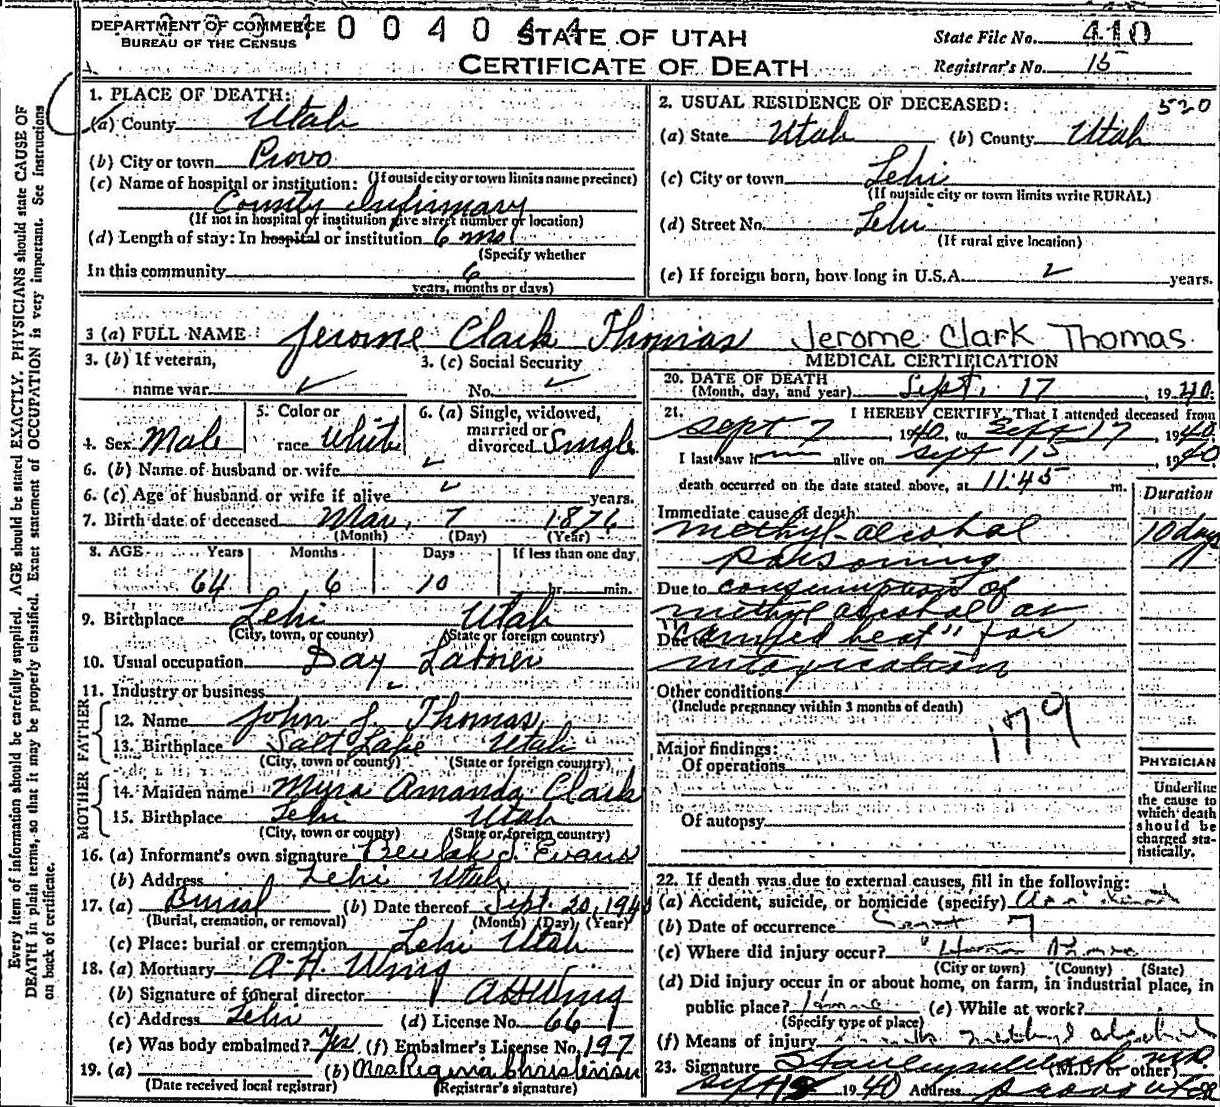 DEPARTMENT OF COMMERCE
BUREAU OF THE CENSUS
0 0 4 0 4 4
STATE OF UTAH
CERTIFICATE OF DEATH
State File No. 410
Registrar's No. 15
1. PLACE OF DEATH:
(a) County Utah
(b) City or town Provo
(If outside city or town limits name precinct)
(c) Name of hospital or institution:
County Infirmary
(If not in hospital or institution give street number or location)
(d) Length of stay: In hospital or institution 6 mo.
(Specify whether
In this community 6
years, months or days)
2. USUAL RESIDENCE OF DECEASED: 520
(a) State Utah (b) County Utah
(c) City or town Lehi
(If outside city or town limits write RURAL)
(d) Street No. Lehi
(If rural give location)
(e) If foreign born, how long in U.S.A. years.
3 (a) FULL NAME Jerome Clark Thomas Jerome Clark Thomas
3. (b) If veteran,
name war
3. (c) Social Security
No.
4. Sex Male
5. Color or
race White
6. (a) Single, widowed,
married or
divorced Single
6. (b) Name of husband or wife
6. (c) Age of husband or wife if alive years.
7. Birth date of deceased Mar. 7 1876
(Month) (Day) (Year)
8. AGE Years Months Days If less than one day
64 6 10 hr. min.
9. Birthplace Lehi Utah
(City, town, or county) (State or foreign country)
10. Usual occupation Day Laborer
11. Industry or business
FATHER
12. Name John J. Thomas
13. Birthplace Salt Lake Utah
(City, town or county) (State or foreign country)
MOTHER
14. Maiden name Myra Amanda Clark
15. Birthplace Lehi Utah
(City, town or county) (State or foreign country)
16. (a) Informant's own signature Beulah S. Evans
(b) Address Lehi Utah
17. (a) Burial (b) Date thereof Sept. 20, 1940
(Burial, cremation, or removal) (Month) (Day) (Year)
(c) Place: burial or cremation Lehi Utah
18. (a) Mortuary A. H. Wing
(b) Signature of funeral director A H Wing
(c) Address Lehi (d) License No. 66
(e) Was body embalmed? Yes (f) Embalmer's License No. 197
19. (a) (b) Mrs Regena Christenson
(Date received local registrar) (Registrar's signature)
MEDICAL CERTIFICATION
20. DATE OF DEATH
(Month, day, and year) Sept. 17, 1940
21. I HEREBY CERTIFY, That I attended deceased from
Sept 7, 1940, to Sept 17, 1940
I last saw h alive on Sept 15, 1940
death occurred on the date stated above, at 11:45 m.
Duration
Immediate cause of death
methyl-alcohol 10 days
poisoning
Due to consumption of
methyl alcohol as
Due to "canned heat" for
intoxication
Other conditions
(Include pregnancy within 3 months of death)
179
Major findings:
Of operations
Of autopsy
PHYSICIAN
Underline
the cause to
which death
should be
charged sta-
tistically.
22. If death was due to external causes, fill in the following:
(a) Accident, suicide, or homicide (specify) Accident
(b) Date of occurrence Sept 7
(c) Where did injury occur?
(City or town) (County) (State)
(d) Did injury occur in or about home, on farm, in industrial place, in
public place? Home (e) While at work?
(Specify type of place)
(f) Means of injury methyl alcohol
23. Signature M.D.
(M.D. or other)
Sept 18 1940 Address Provo Utah
Every item of information should be carefully supplied. AGE should be stated EXACTLY. PHYSICIANS should state CAUSE OF
DEATH in plain terms, so that it may be properly classified. Exact statement of OCCUPATION is very important. See instructions
on back of certificate.